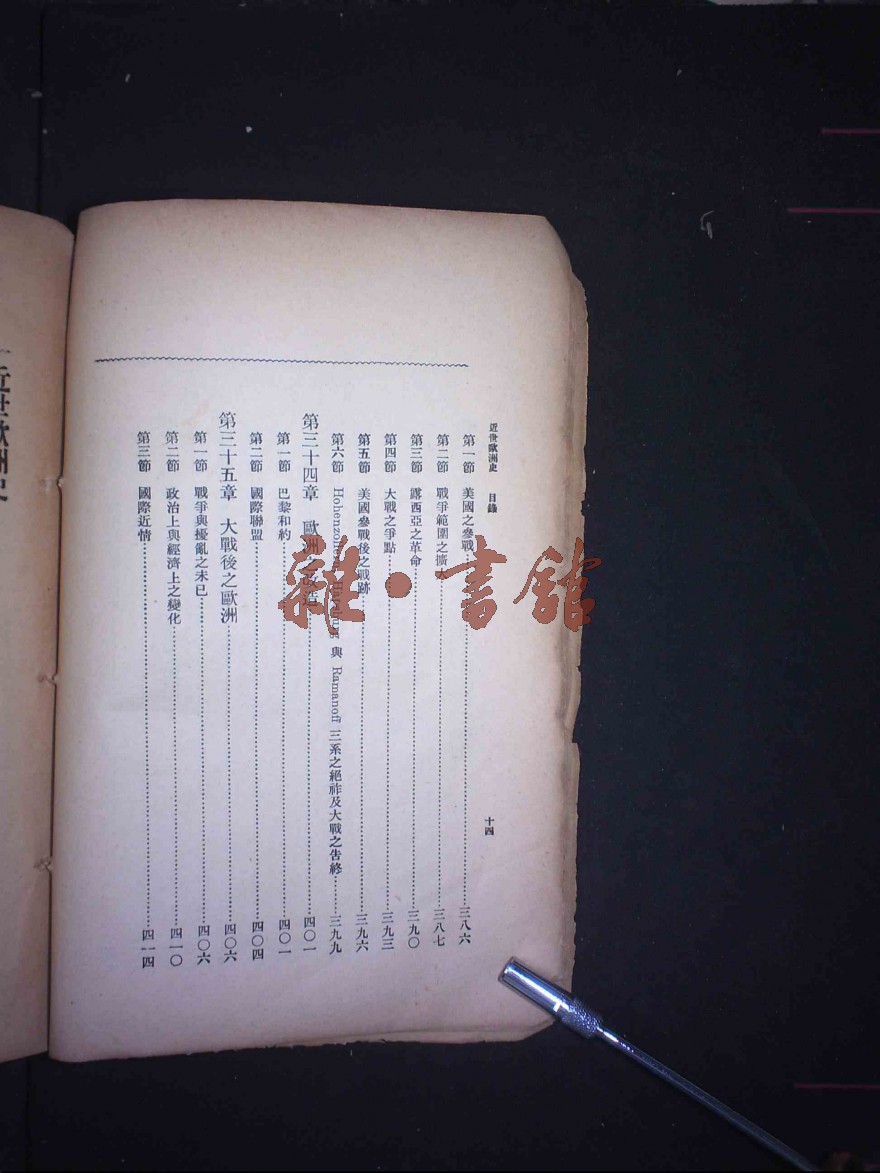 近世歐洲史　目錄　十四
第一節　美國之參戰……三八六
第二節　戰爭範圍之擴大……三八七
第三節　露西亞之革命……三九〇
第四節　大戰之爭點……三九三
第五節　美國參戰後之戰跡……三九六
第六節　Hohenzollern Hapsburg 與 Ramanoff 三系之絕祚及大戰之告終……三九九
第三十四章　歐洲之改造……四〇一
第一節　巴黎和約……四〇一
第二節　國際聯盟……四〇四
第三十五章　大戰後之歐洲……四〇六
第一節　戰爭與擾亂之未已……四〇六
第二節　政治上與經濟上之變化……四一〇
第三節　國際近情……四一四
近世歐洲史
雜·書館